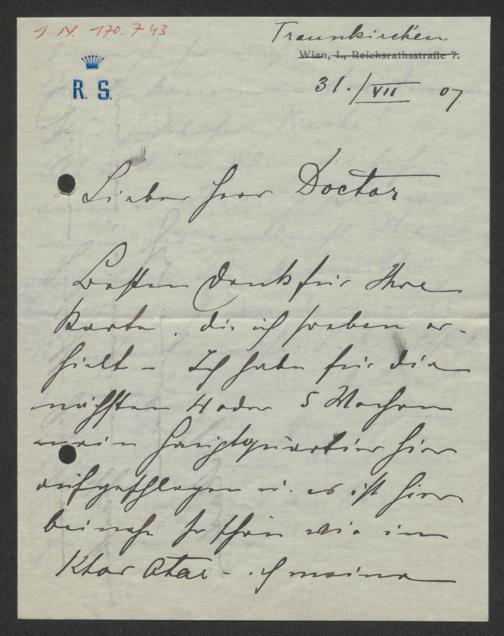 I. N. 170.743
Traunkirchen
Wien, I., Reichsrathsstraße 7.
R. S.
31./VII 07
Lieber Herr Doctor
Besten Dank für Ihre
Karte, die ich soeben er-
hielt – Ich habe für die
nächsten 4 oder 5 Wochen
mein Hauptquartier hier
aufgeschlagen u. es ist hier
beinahe so schön wie im
– ich meine